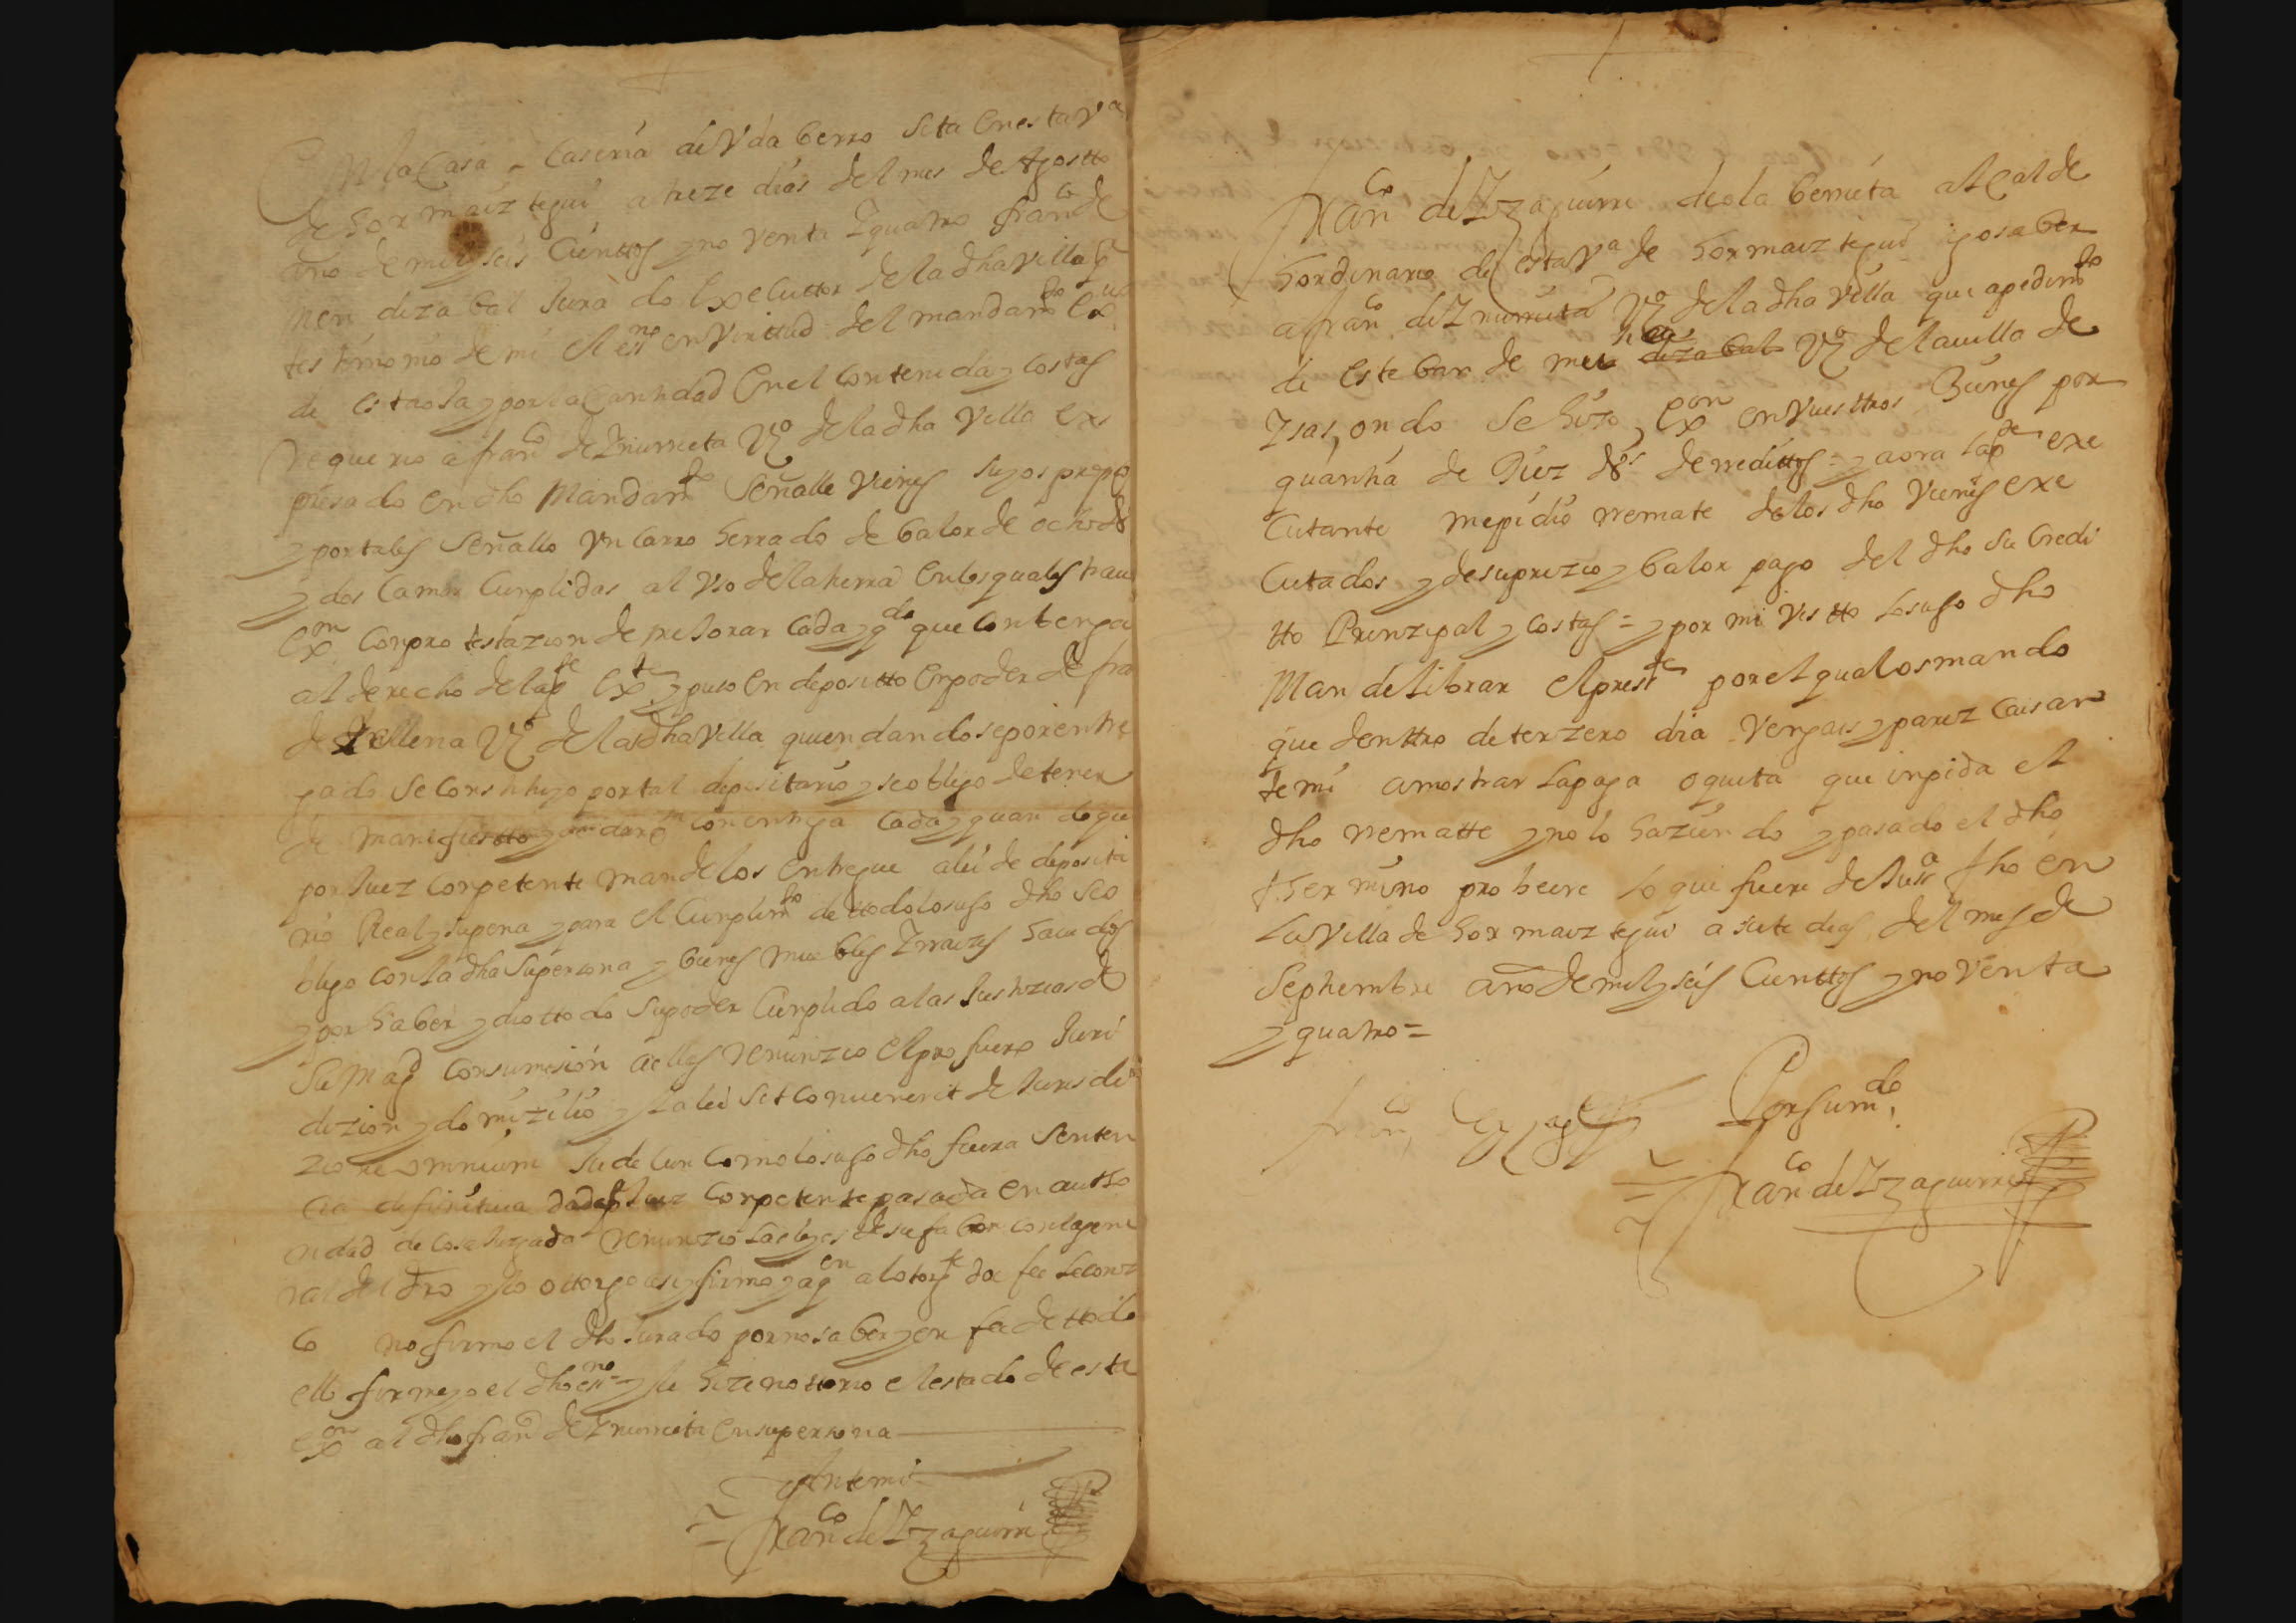 En la Casa y Caseria de Vdaberro sita en esta Vª
de hormaiztegui a treze dias del mes de Agostto
año de mil y seis Cienttos y noventa y quatro franco de
diza bal Jurado Executtor de la dha villa
testimonio de mi el essno en Virttud del mandamto
de esta oja y por la Cantidad en el contenida y costas
requerio a franco de Ynurrieta Vzº de la dha Villa
presado en dho Mandamto señalle Vienes suyos propios
y por tales señallo Vn Carro herrado de balor de ocho ds
y dos Camas Cunplidas al Vso de la tierra en los quales trauo
exon con protestazion de mejorar cada y qdo que conbenga
al derecho de la pte exte y puso en depositto en poder de fran
de Vzº de la dha Villa quien dandose por entre
gado se constituyo por tal depositario y se obligo de tener
de manifiestto con entrega cada y quando que
por Juez conpetente mandelos entregue a lei de deposita
rio Real y su pena y para el Cunplimto de ttodo lo suso dho se o
bligo con la dha su persona y bienes muebles y rraizes hauidos
y por haber y dio ttodo su poder Cunplido a las Justizias de
su Magd con sumision a ellas renunzio el pro fuero Juri
dizion y domizilio y la lei sit conuenerit de Jurisdi
zione omnium Judicun como lo suso dho fuera senten
cia difinitiua dada por Juez conpetente pasada en autto
ridad de cosa Juzgada renunzio las leyes de su fabor con la gene
ral del dro y lo ottorgo asi y firmo y a qn al otorgte doi fee le conoz
co no firmo el dho Jurado por no saber y en fee de ttodo
ello firme yo el dho essno y le hize nottorio el estado de esta
exon al dho franco de Ynurrieta en su persona
Ante mi
Franco de Yzaguirre
Franco de Yzaguirre de olaberrieta alcalde
hordinario de esta Vª de hormaiztegui hago saber
a franco de Ynurrieta Vzº de la dha Villa que a pedimto
de esteban de mu diza bal Vzº de la uilla de
Ysasondo se hizo exon en vuesttros Bienes por
quantia de Diez ds de redittos = y aora la pte exe
cutante me pidio rremate de los dho Vienes exe
cutados y de su prezio y balor pago del dho su credi
tto Prinzipal y costas = y por mi vistto lo suso dho
Mande librar el preste por el qual os mando
que denttro de terzero dia Vengais y parezcais an
te mi a mostrar la paga o quita que inpida el
dho rrematte y no lo haziendo y pasado el dho
ttermino probeere lo que fuere de Justª fho en
La Villa de hormaiztegui a siete dias del mes de
Septiembre año de mil y seis Cienttos y noventa
y quatro =
Por su mdo
Franco de Yzaguirre